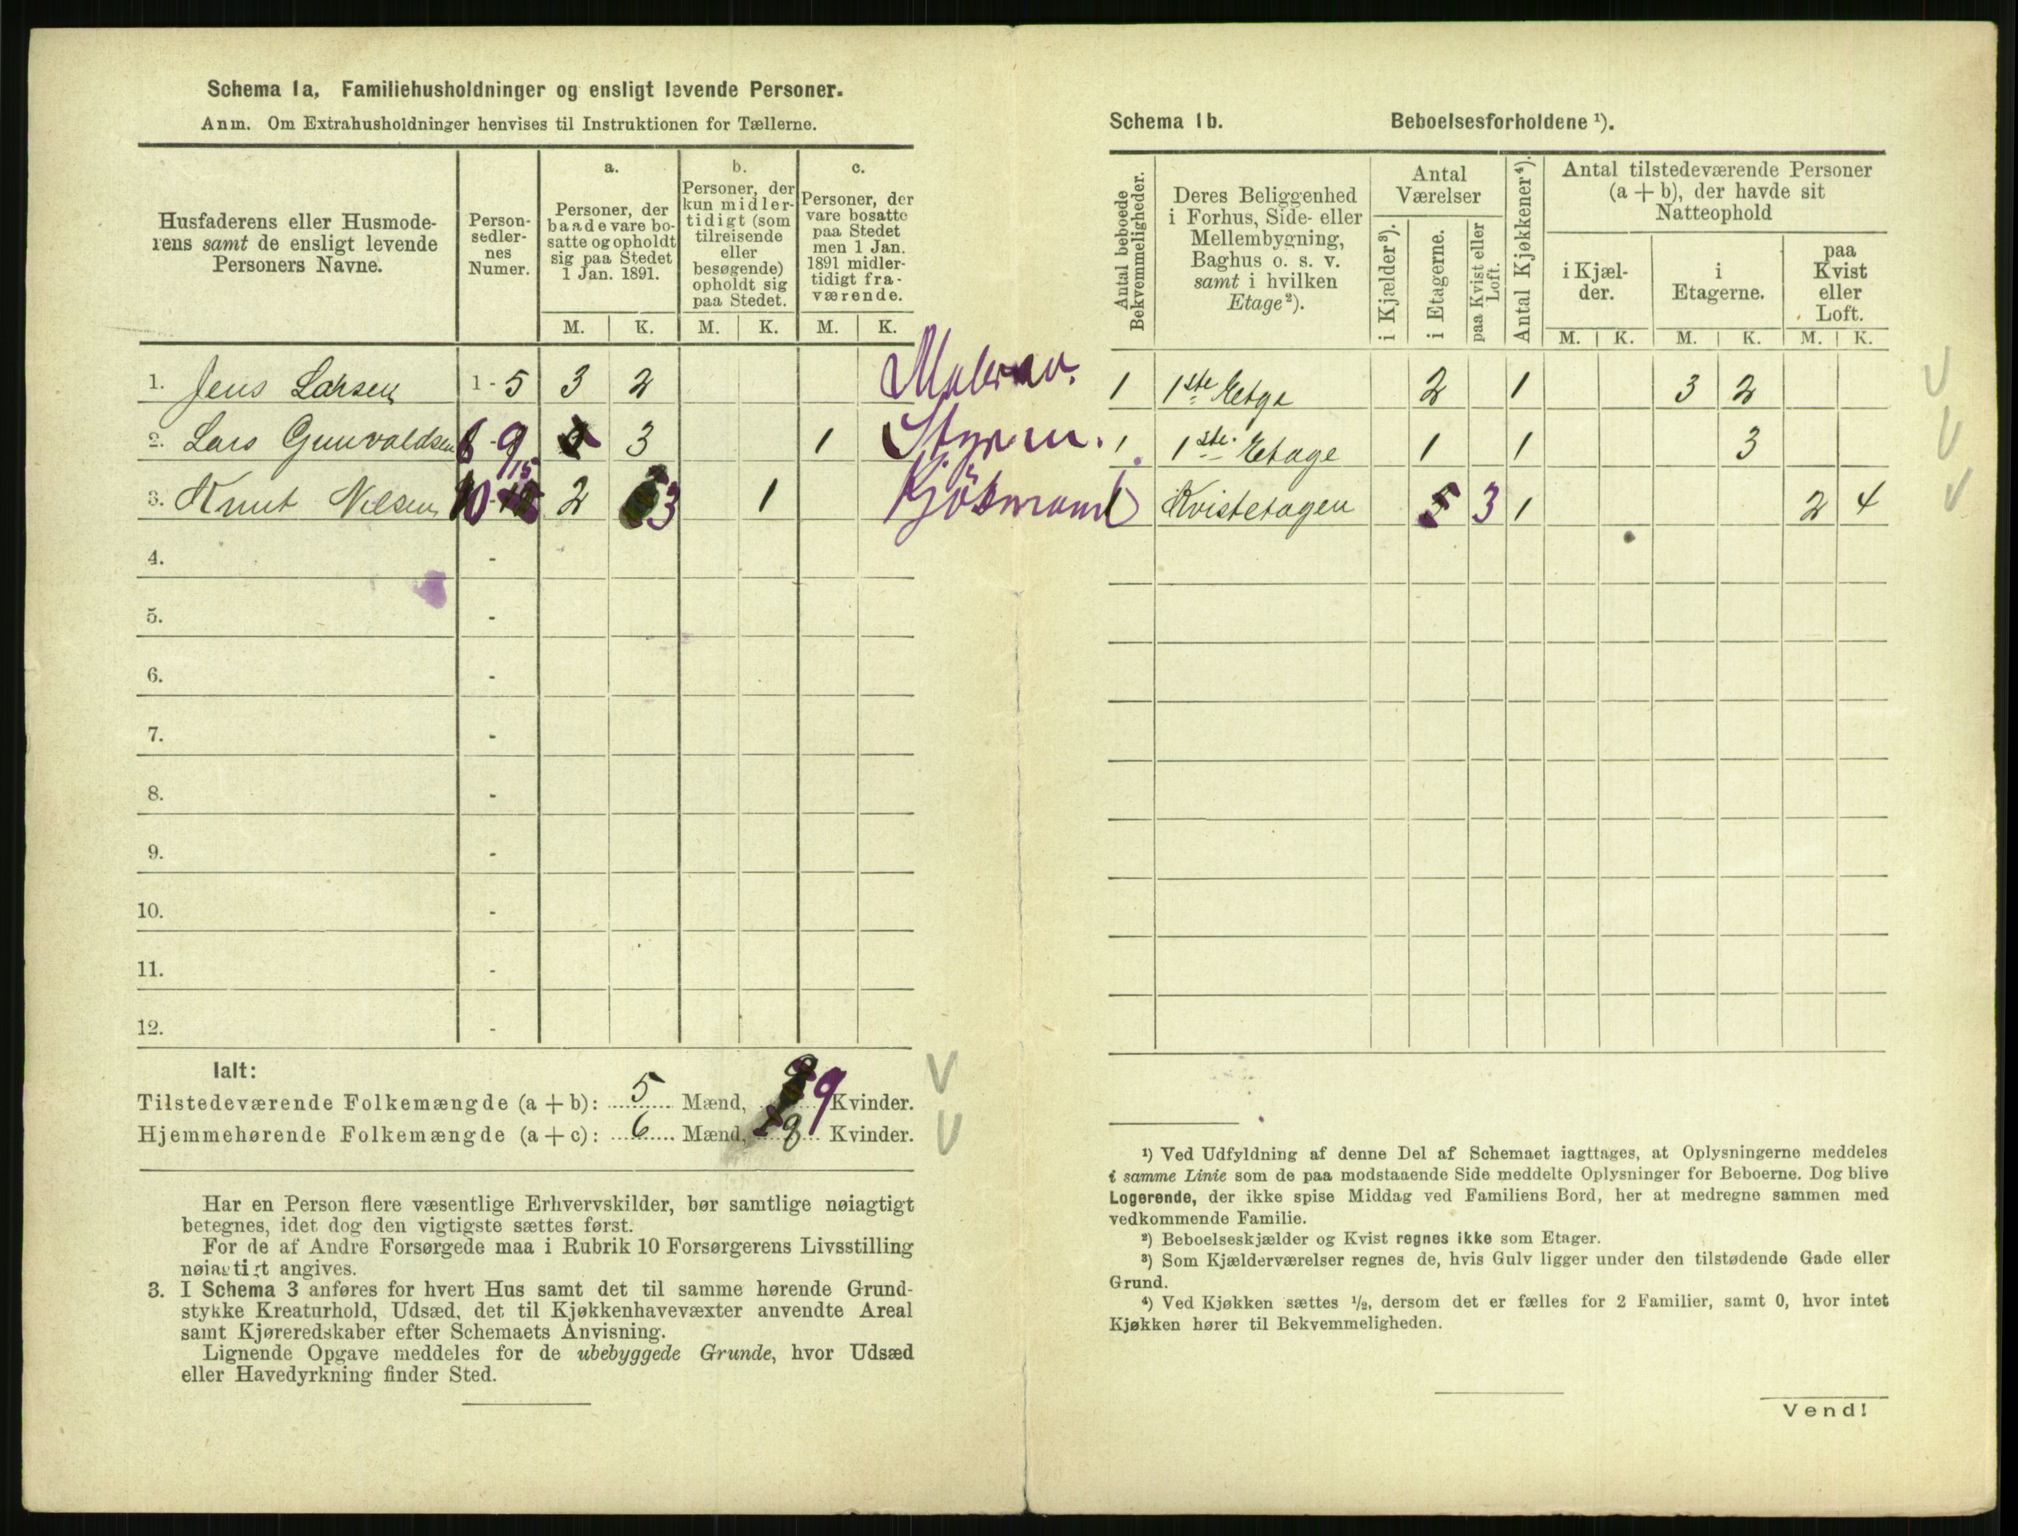 Schema 1a. Familiehusholdninger og ensligt levende Personer.
Anm. Om Extrahusholdninger henvises til Instruktionen for Tællerne.
Husfaderens eller Husmode-
rens samt de ensligt levende
Personers Navne.
Person-
sedler-
nes
Numer.
a.
Personer, der
baade vare bo-
satte og opholdt
sig paa Stedet
1 Jan. 1891.
M. K.
b.
Personer, der
kun midler-
tidigt (som
tilreisende
eller
besøgende)
opholdt sig
paa Stedet.
M. K.
c.
Personer, der
vare bosatte
paa Stedet
men 1 Jan.
1891 midler-
tidigt fra-
værende.
M. K.
1. Jens Larsen 1 - 5 3 2
2. Lars Gunvaldsen 6 - 9 3 1 Styrm.
3. Knut Nilsen 10 - 15 2 3 1
4. -
5. -
6. -
7. -
8. -
9. -
10. -
11. -
12. -
Ialt:
Tilstedeværende Folkemængde (a + b): 5 Mænd, 9 Kvinder.
Hjemmehørende Folkemængde (a + c): 6 Mænd, 8 Kvinder.
Har en Person flere væsentlige Erhvervskilder, bør samtlige nøiagtigt
betegnes, idet dog den vigtigste sættes først.
For de af Andre Forsørgede maa i Rubrik 10 Forsørgerens Livsstilling
nøiagtigt angives.
3. I Schema 3 anføres for hvert Hus samt det til samme hørende Grund-
stykke Kreaturhold, Udsæd, det til Kjøkkenhavevæxter anvendte Areal
samt Kjøreredskaber efter Schemaets Anvisning.
Lignende Opgave meddeles for de ubebyggede Grunde, hvor Udsæd
eller Havedyrkning finder Sted.
Schema 1b. Beboelsesforholdene ¹).
Antal beboede
Bekvemmeligheder.
Deres Beliggenhed
i Forhus, Side- eller
Mellembygning,
Baghus o. s. v.
samt i hvilken
Etage ²).
Antal
Værelser
i Kjælder ³).
i Etagerne.
paa Kvist eller
Loft.
Antal Kjøkkener ⁴).
Antal tilstedeværende Personer
(a + b), der havde sit
Natteophold
i Kjæl-
der.
i
Etagerne.
paa
Kvist
eller
Loft.
M. K. M. K. M. K.
1 1ste Etge 2 1 3 2
1 1ste Etage 1 1 3
1 Kvistetagen 3 1 2 4
¹) Ved Udfyldning af denne Del af Schemaet iagttages, at Oplysningerne meddeles
i samme Linie som de paa modstaaende Side meddelte Oplysninger for Beboerne. Dog blive
Logerende, der ikke spise Middag ved Familiens Bord, her at medregne sammen med
vedkommende Familie.
²) Beboelseskjælder og Kvist regnes ikke som Etager.
³) Som Kjælderværelser regnes de, hvis Gulv ligger under den tilstødende Gade eller
Grund.
⁴) Ved Kjøkken sættes ½, dersom det er fælles for 2 Familier, samt 0, hvor intet
Kjøkken hører til Bekvemmeligheden.
Vend!